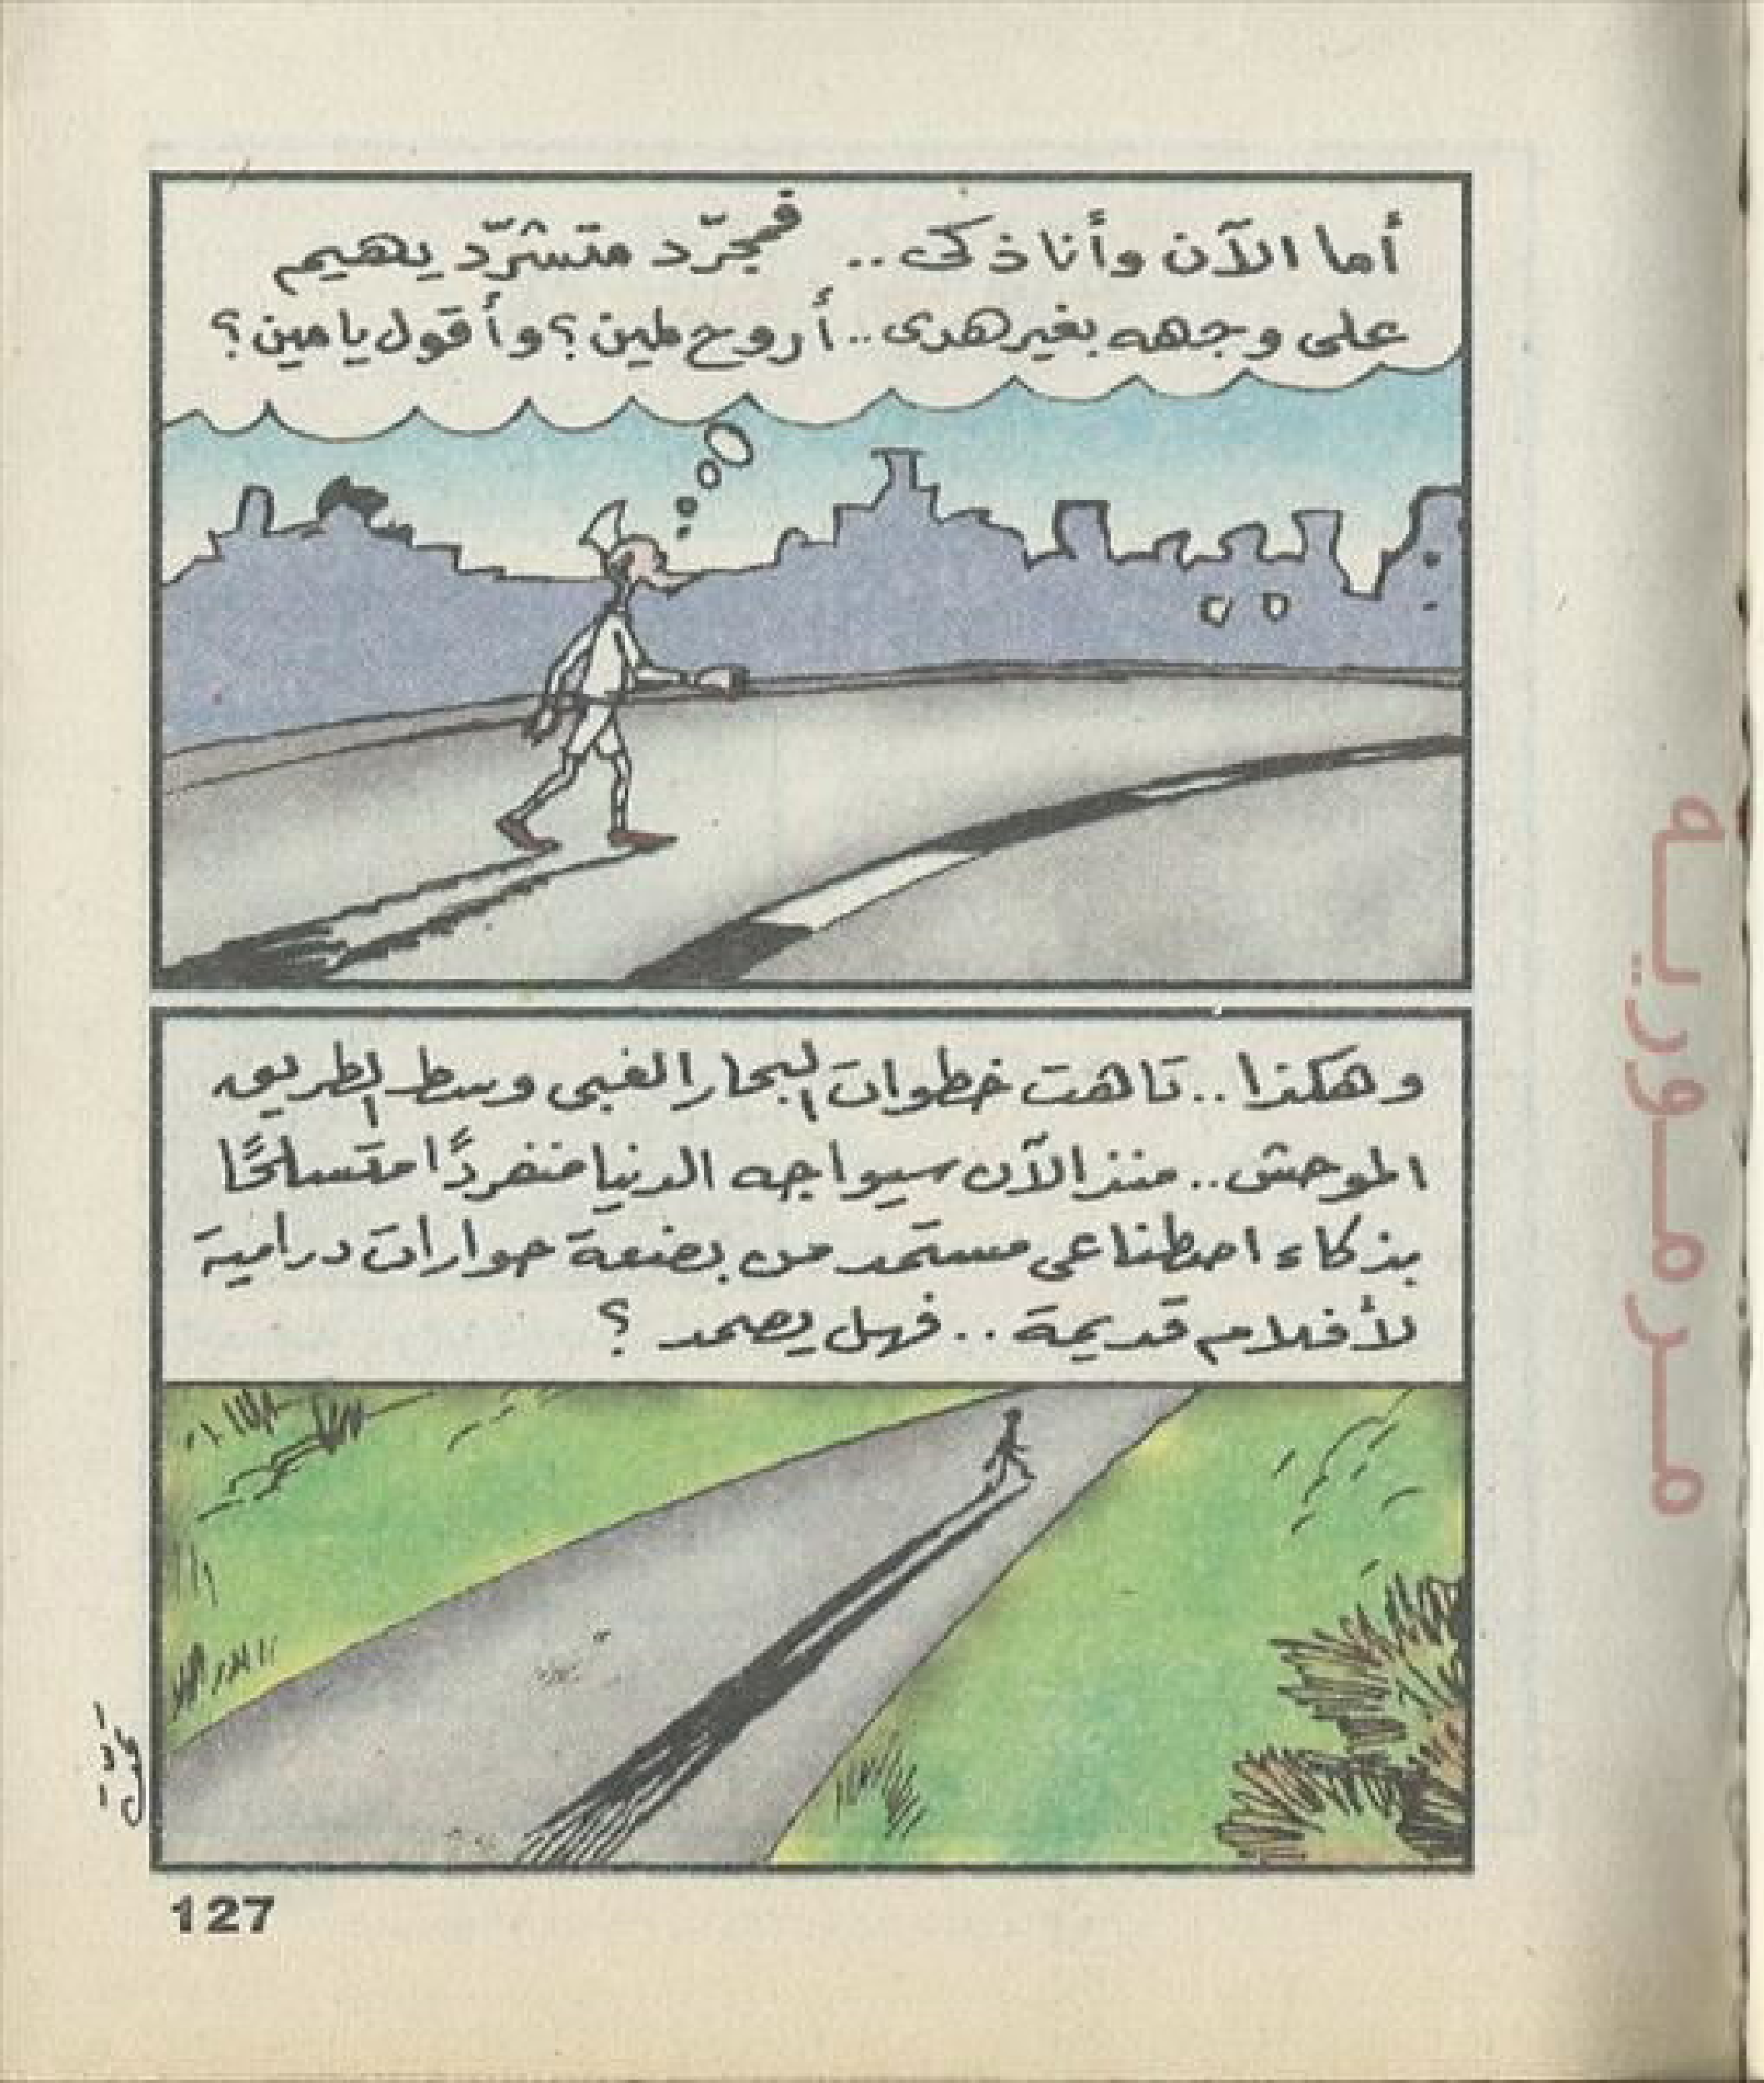 أما الآن وأنا ذكى .. فمجرّد متشرّد يهيم
على وجهه بغير هدى .. أروح لمين ؟ وأقول يا مين ؟
وهكذا .. تاهت خطوات البحار الغبى وسط الطريق
الموحش .. منذ الآن سيواجه الدنيا منفردًا متسلحًا
بذكاء اصطناعى مستمد من بضعة حوارات درامية
لأفلام قديمة .. فهل يصمد ؟
127
مـرمـوريـه